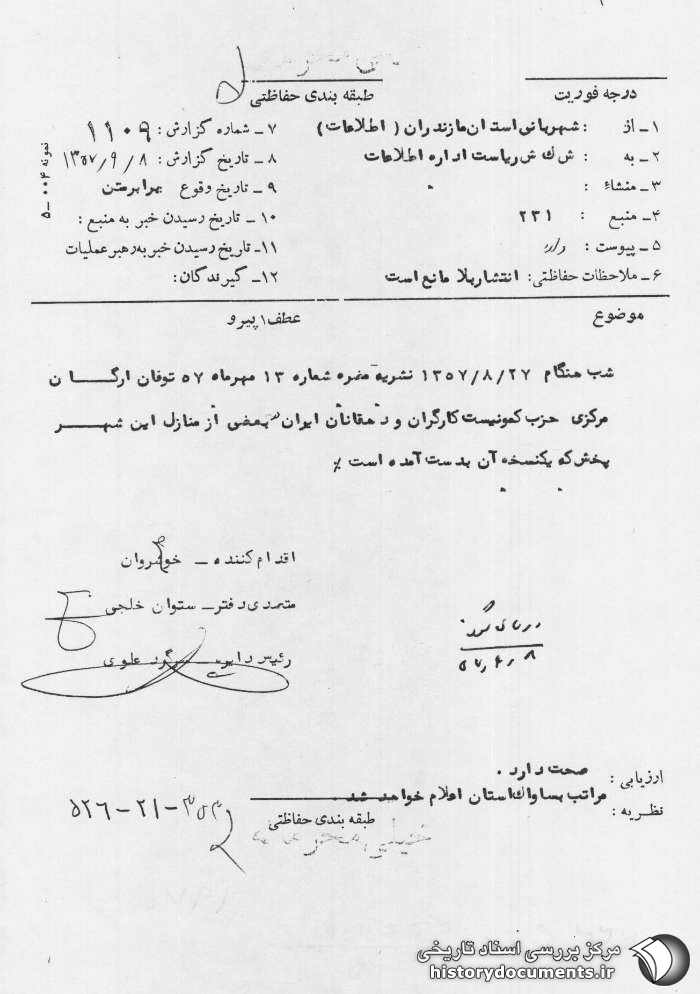 درجه فوریت
طبقه بندی حفاظتی
۱ـ از : شهربانی استان مازندران ( اطلاعات )
۲ـ به : ش ك ش ریاست اداره اطلاعات
۳ـ منشاء :
۴ـ منبع : ۲۳۱
۵ـ پیوست : دارد
۶ـ ملاحظات حفاظتی: انتشار بلا مانع است
۷ـ شماره گزارش: ۱۱۰۹
۸ـ تاریخ گزارش: ۱۳۵۷/۹/۸
۹ـ تاریخ وقوع برابر متن
۱۰ـ تاریخ رسیدن خبر به منبع :
۱۱ـ تاریخ رسیدن خبر به رهبر عملیات
۱۲ـ گیرندگان:
نمونه ۰۰۴ـ۵
موضوع
عطف / پیرو
شب هنگام ۱۳۵۷/۸/۲۷ نشریه مضره شماره ۱۳ مهرماه ۵۷ توفان ارگان
مرکزی حزب کمونیست کارگران و دهقانان ایران ببعضی از منازل این شهر
پخش که یکنسخه آن بدست آمده است ٪
اقدام کننده ـ خوشروان
متصدی دفتر ـ ستوان خلجی
رئیس دایره سرگرد علوی
۵۷٫۹٫۸
ارزیابی : صحت دارد .
نظریه : مراتب بساواك استان اعلام خواهد شد .
طبقه بندی حفاظتی
خیلی محرمانه
۵۲۶-۲۱-
مرکز بررسی اسناد تاریخی
historydocuments.ir